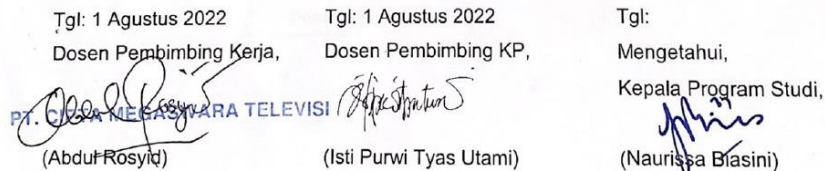 Tgl: 1 Agustus 2022
Dosen Pembimbing Kerja,
PT. CIPTA MEGASWARA TELEVISI
(Abdul Rosyid)
Tgl: 1 Agustus 2022
Dosen Pembimbing KP,
(Isti Purwi Tyas Utami)
Tgl:
Mengetahui,
Kepala Program Studi,
(Naurissa Biasini)